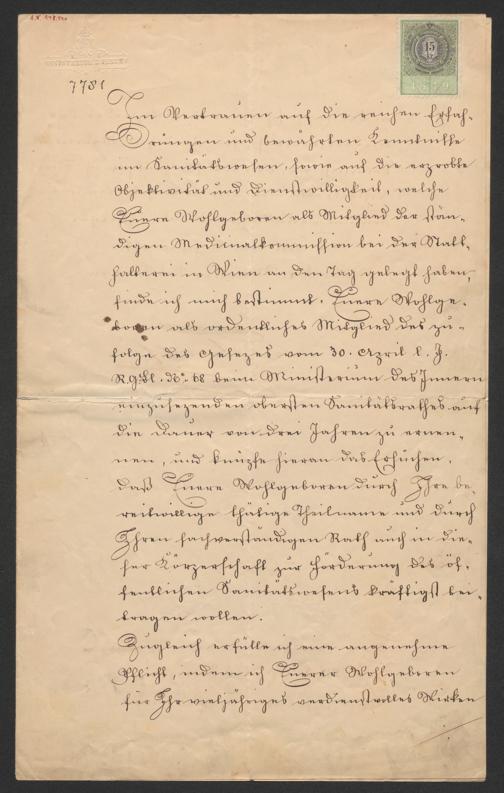 7781
15
Im Vertrauen auf die reichen Erfah-
rungen und bewährten Kenntnisse
im Sanitätswesen, sowie auf die erprobte
Objektivität und Dienstwilligkeit, welche
Euere Wohlgeboren als Mitglied der stän-
digen Medicinalkommission bei der Statt-
halterei in Wien an den Tag gelegt haben,
finde ich mich bestimmt, Euere Wohlge-
boren als ordentliches Mitglied des zu-
folge des Gesezes vom 30. April l. J.
R.G.Bl. No. 68 beim Ministerium des Innern
einzusezenden obersten Sanitätsrathes auf
die Dauer von drei Jahren zu ernen-
nen, und knüpfe hieran das Ersuchen,
daß Euere Wohlgeboren durch Ihre be-
reitwillige thätige Theilname und durch
Ihren fachverständigen Rath auch in die-
ser Körperschaft zur Förderung des öf-
fentlichen Sanitätswesens kräftigst bei-
tragen wollen.
Zugleich erfülle ich eine angenehme
Pflicht, indem ich Euerer Wohlgeboren
für Ihr vieljähriges verdienstvolles Wirken